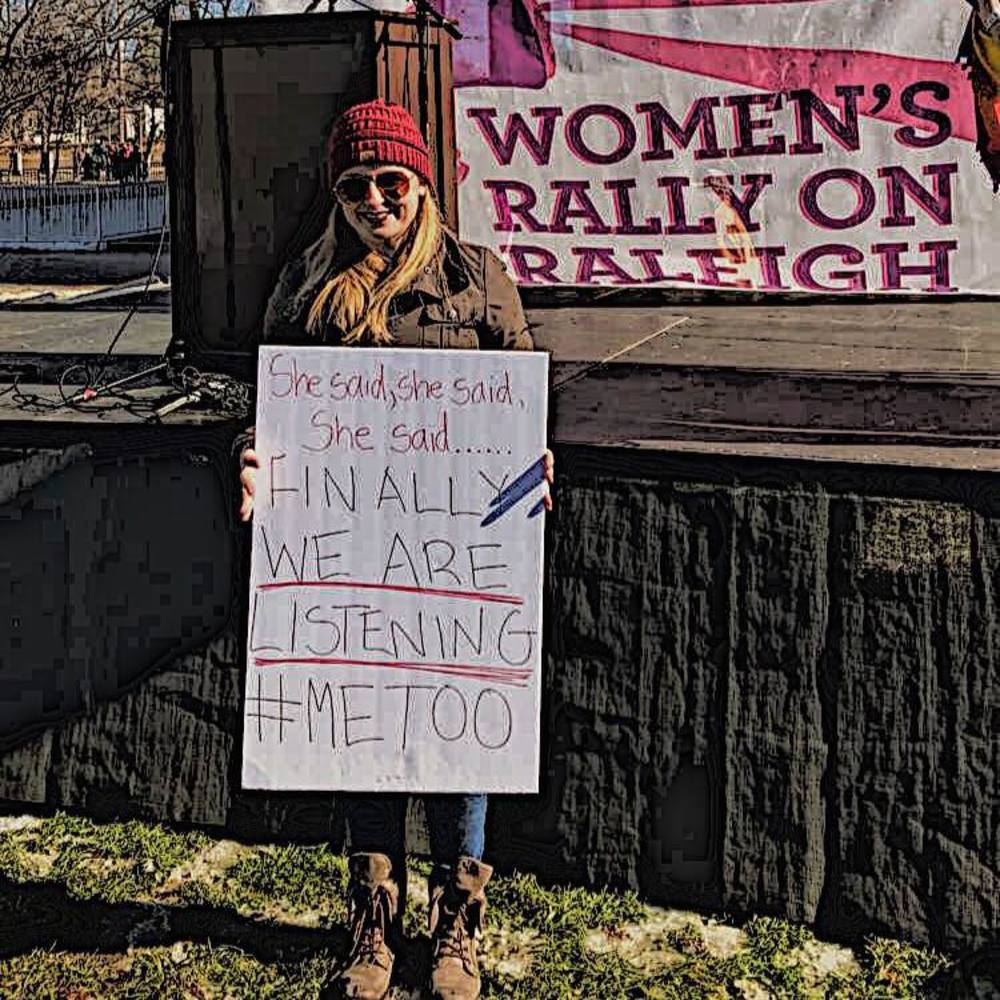 WOMEN'S
RALLY ON
RALEIGH
She said, she said,
She said......
FINALLY
WE ARE
LISTENING
#METOO